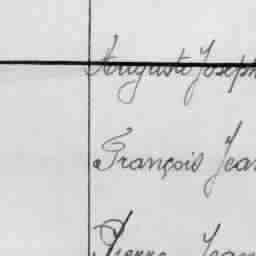 Auguste Joseph
François Jean
Pierre Jean